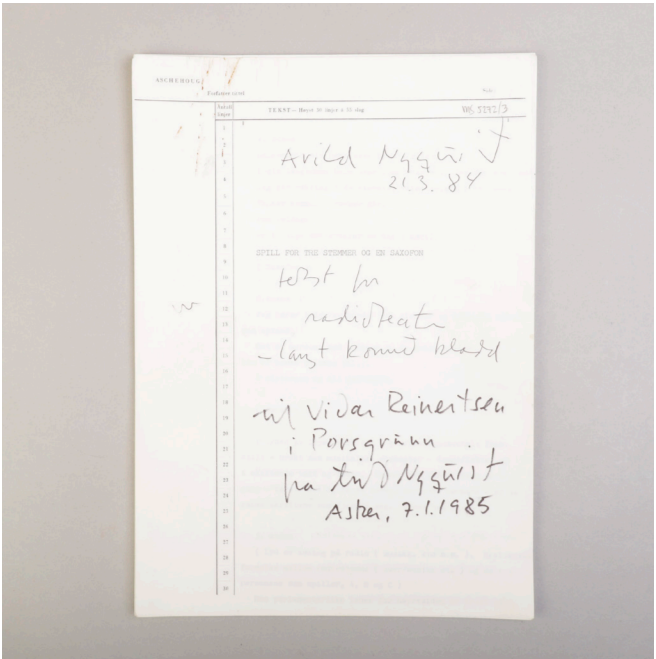 ASCHEHOUG
TEKST – Høyst 30 linjer a 70 slag
Arild Nyquist
21.3.84
SPILL FOR TRE STEMMER OG EN SAXOFON
tekst for
radioteater
– langt kommet kladd
til Vidar Reinertsen
i Porsgrunn
fra Arild Nyquist
Asker, 7.1.1985